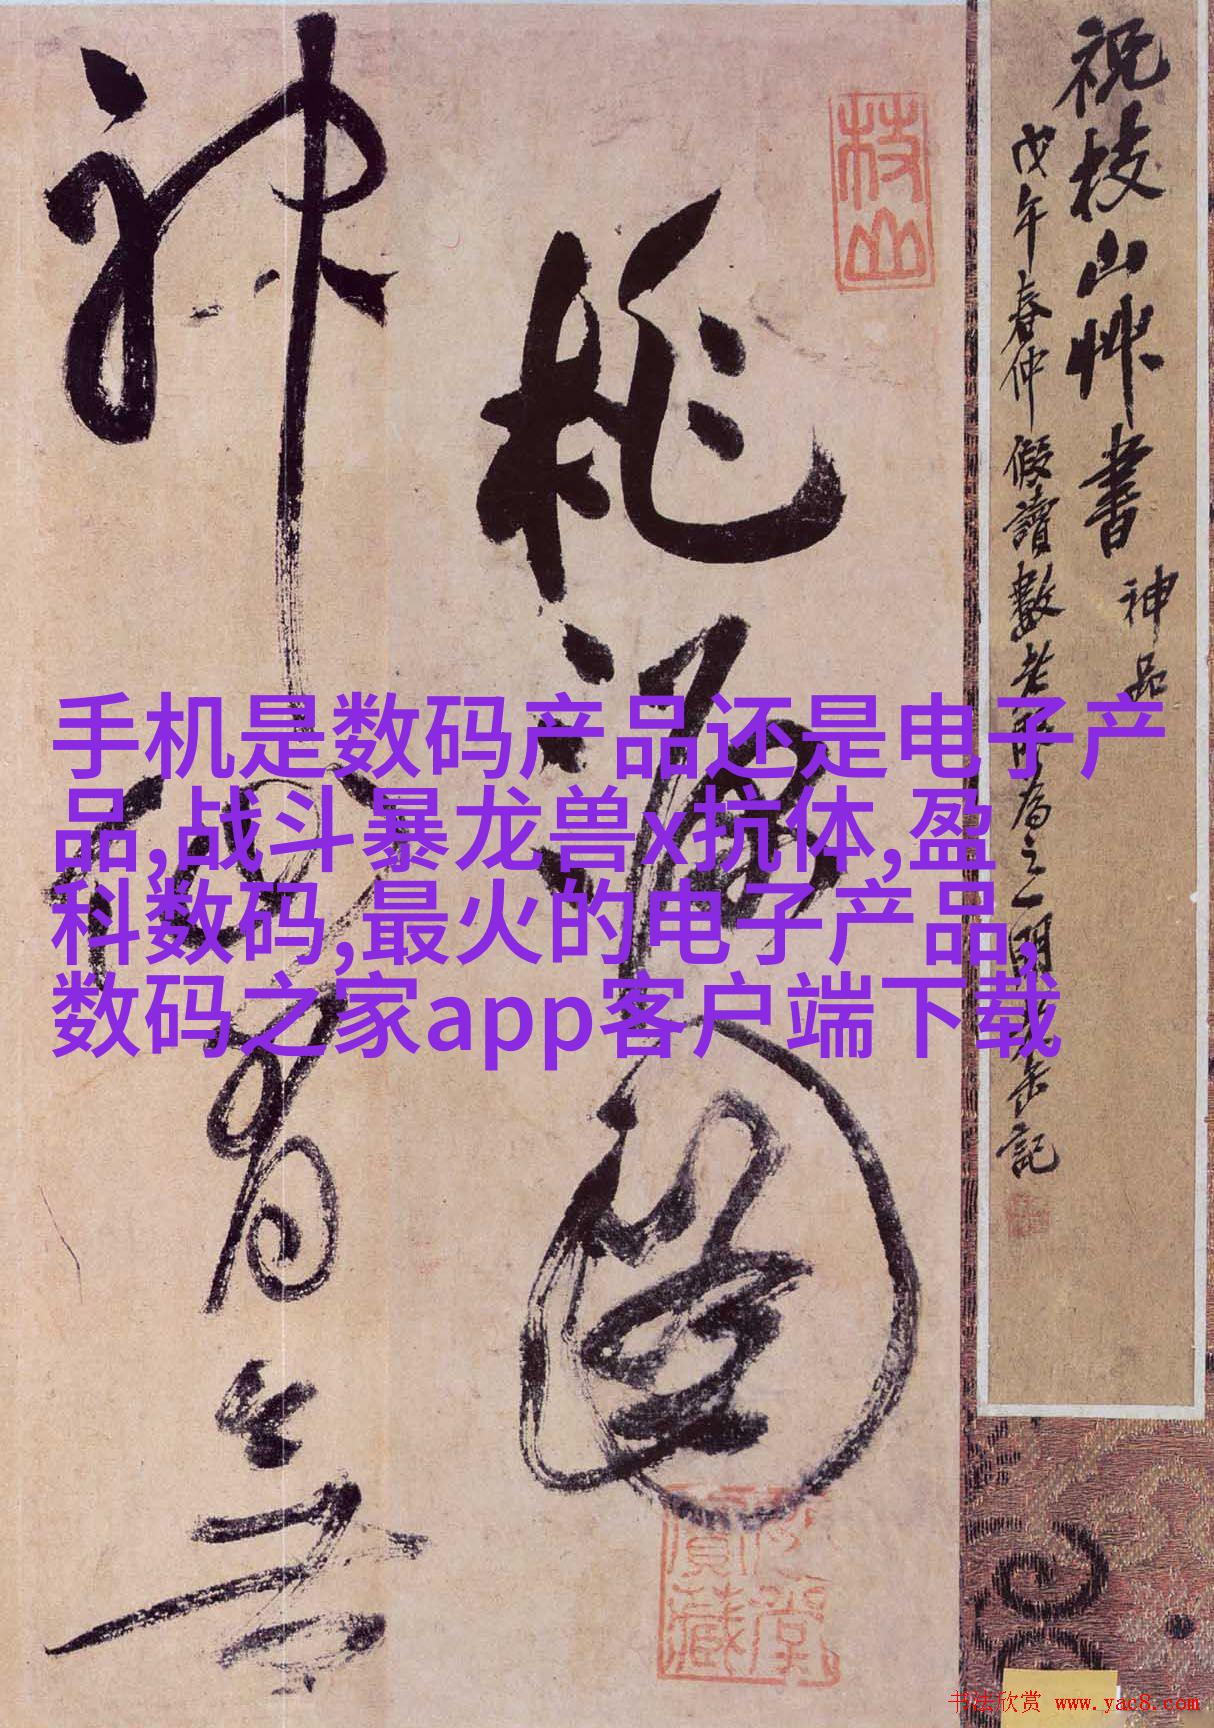 祝枝山艸書 神品
戊午春仲假讀數
記
枝山
桃源圖
神仙有無
手机是数码产品还是电子产
品,战斗暴龙兽x抗体,盈
科数码,最火的电子产品,
数码之家app客户端下载
书法欣赏 www.yac8.com